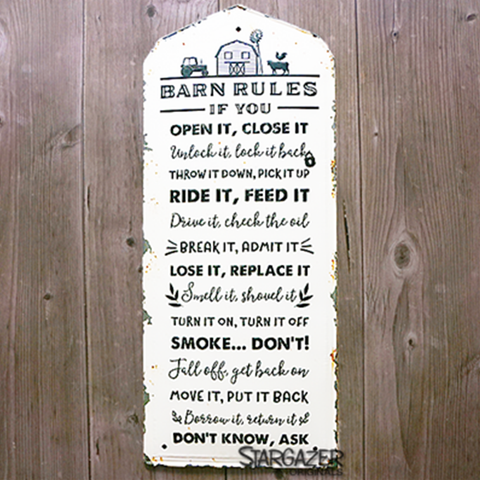 BARN RULES
IF YOU
OPEN IT, CLOSE IT
Unlock it, lock it back
THROW IT DOWN, PICK IT UP
RIDE IT, FEED IT
Drive it, check the oil
BREAK IT, ADMIT IT
LOSE IT, REPLACE IT
Smell it, shovel it
TURN IT ON, TURN IT OFF
SMOKE... DON'T!
Fall off, get back on
MOVE IT, PUT IT BACK
Borrow it, return it
DON'T KNOW, ASK
STARGAZER